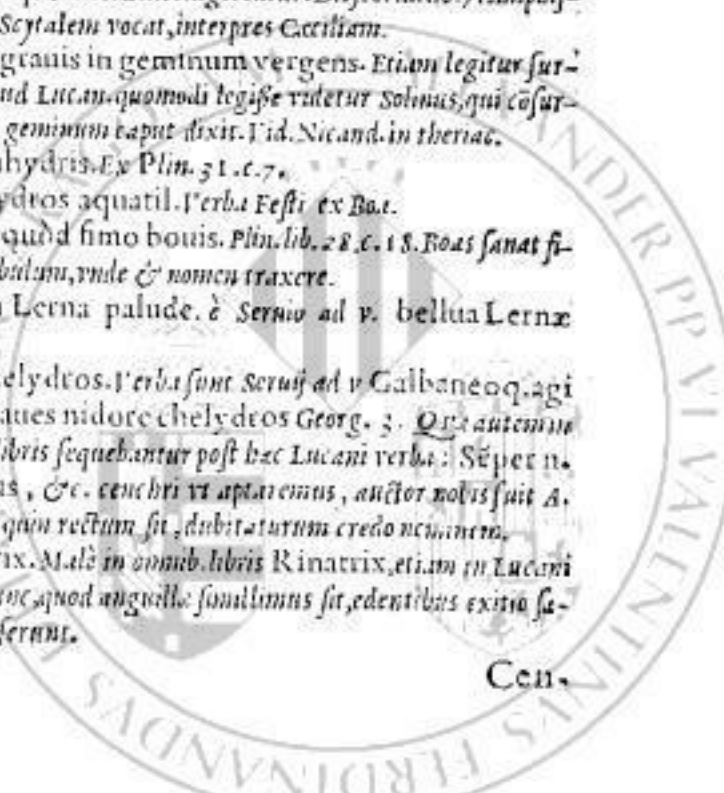 Scytalem vocat, interpres Cæciliam.
grauis in geminum vergens. Etiam legitur sur-
ud Lucan. quomodi legisse videtur Solinus, qui cōsur-
geminum caput dixit. Vid. Nicand. in theriac.
hydris. Ex Plin. 31.c.7.
ydros aquatil. Verba Festi ex Boa.
quòd fimo bouis. Plin. lib. 28.c.18. Boas sanat fi-
bulum, vnde & nomen traxere.
Lerna palude. è Seruio ad v. bellua Lernæ
elydros. Verba sunt Seruij ad v Galbaneoq. agi
aues nidore chelydros Georg. 3. Quæ autem in
libris sequebantur post hæc Lucani verba: Sēper n.
s, &c. cenchri vt aptaremus, auctor nobis fuit A.
quin rectum sit, dubitaturum credo neminem.
ix. Malè in omnib. libris Rinatrix, etiam in Lucani
nc, quod anguillæ simillimus sit, edentibus exitio
ferunt.
Cen-
ALEXANDER PP VI VALENTINVS FERDINANDVS